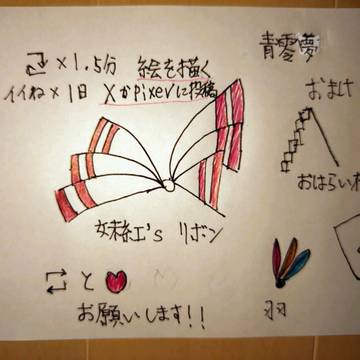 ×1.5分 絵を描く
イイね×1日 XかPixivに投稿
青零夢
おまけ
おはらい
妹紅's リボン
と
お願いします!!
羽